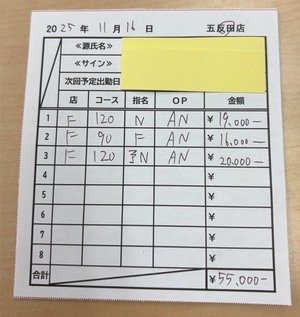 2025年 11月 16日 五反田店
≪源氏名≫
≪サイン≫
次回予定出勤日
店 コース 指名 OP 金額
1 F 120 N AN ¥19,000-
2 F 90 F AN ¥16,000-
3 F 120 予N AN ¥20,000-
4 ¥
5 ¥
6 ¥
7 ¥
8 ¥
合計 ¥55,000-